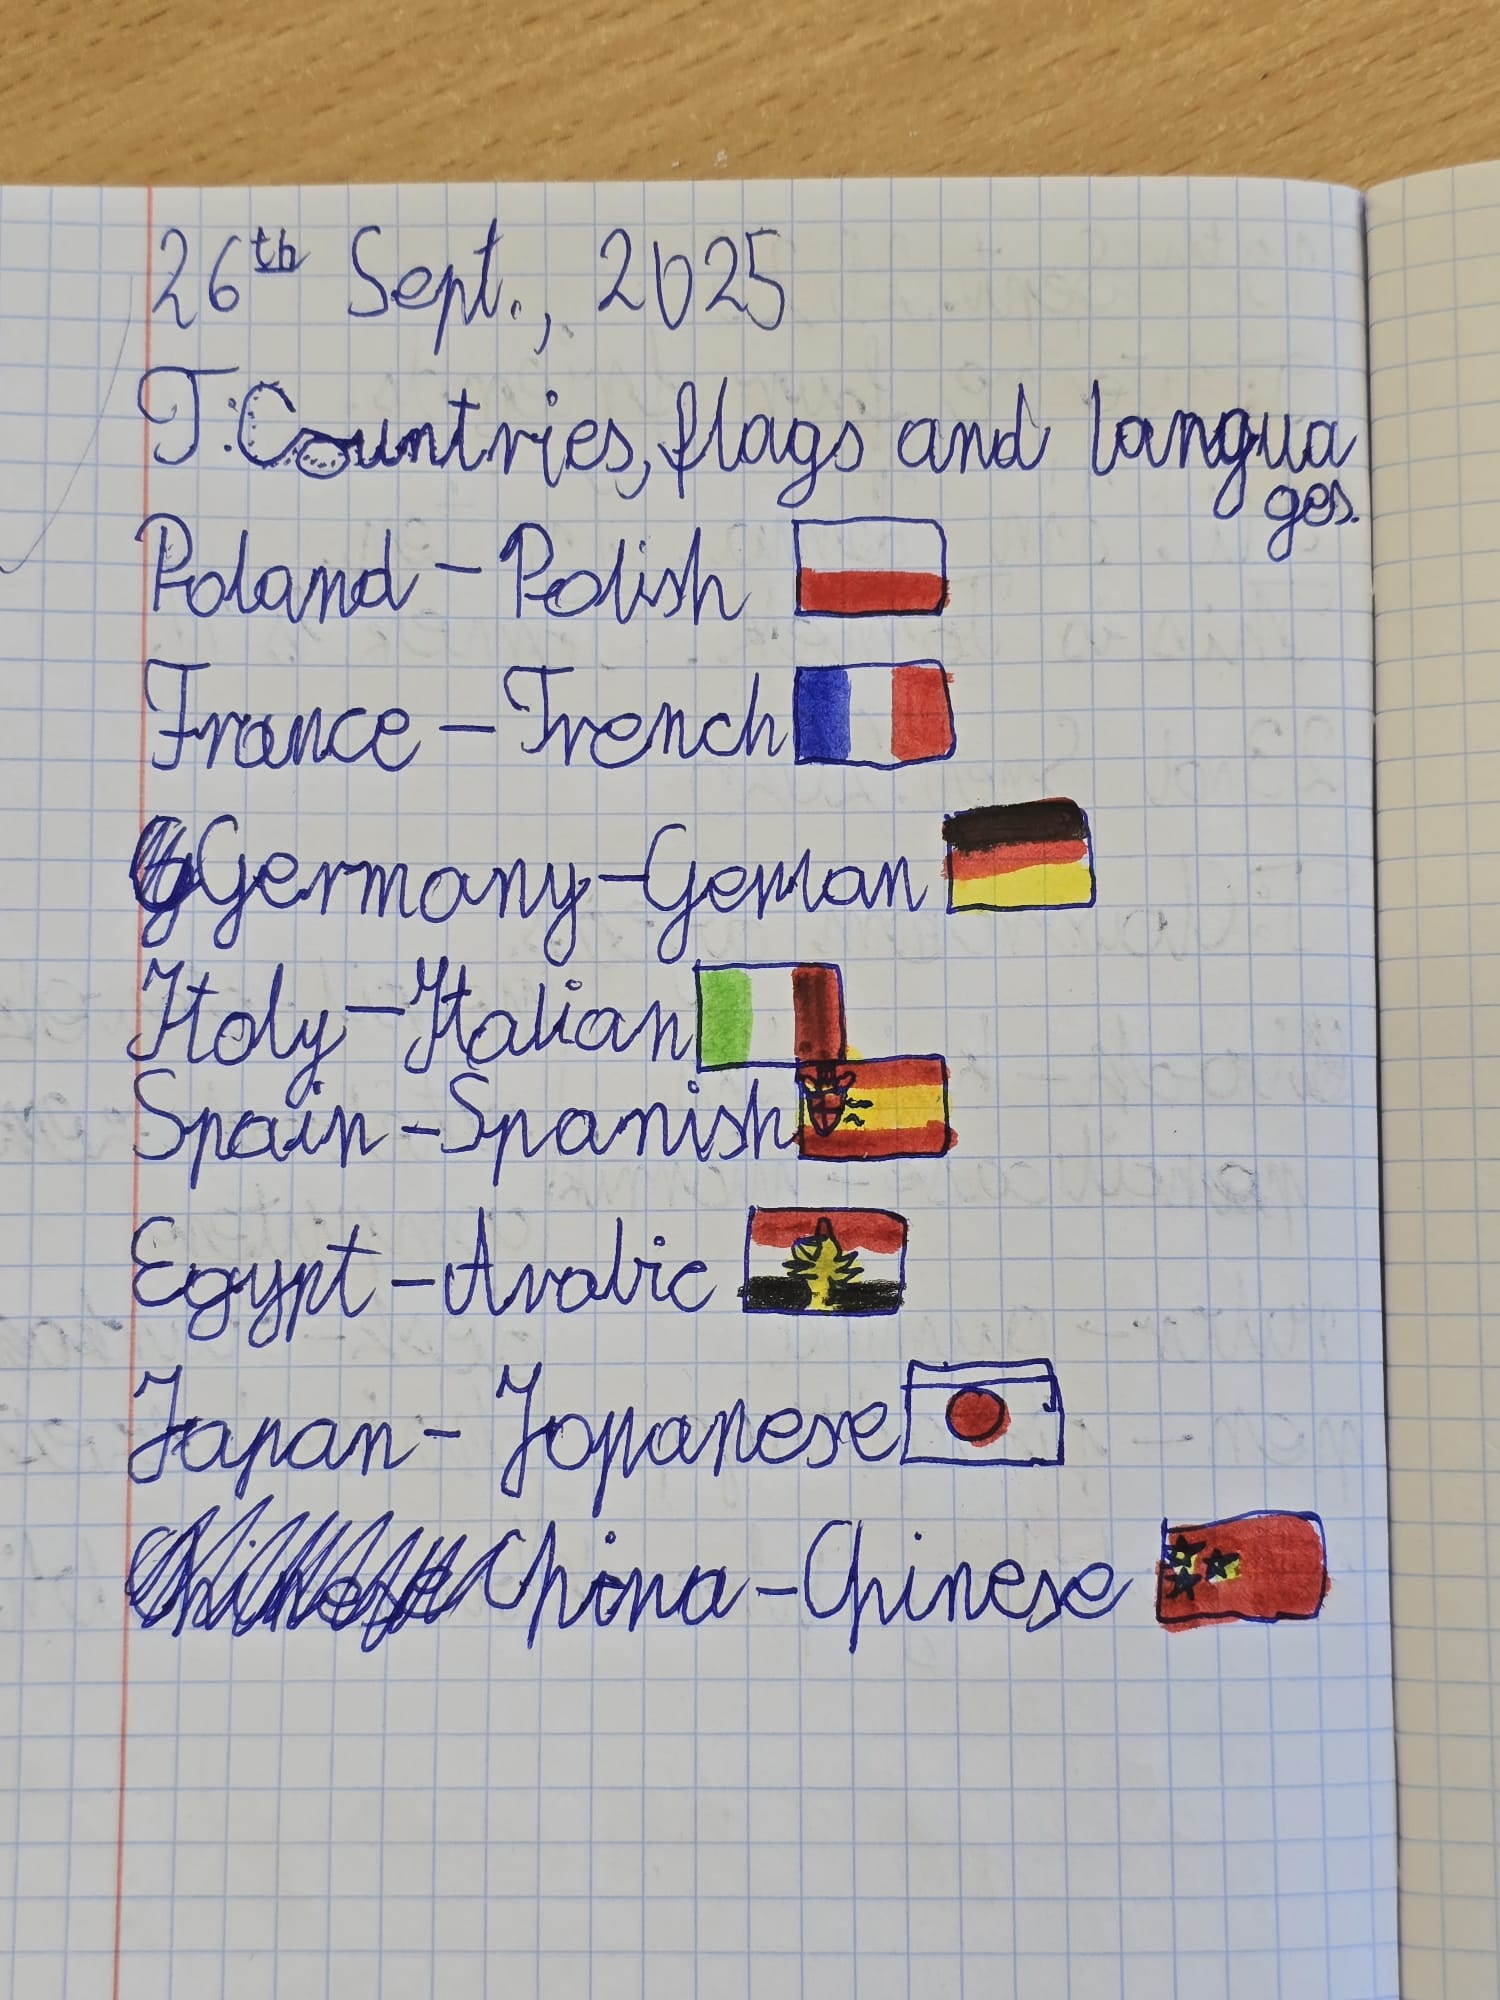 26th Sept., 2025
T: Countries, flags and langua
ges.
Poland - Polish
France - French
Germany - German
Italy - Italian
Spain - Spanish
Egypt - Arabic
Japan - Japanese
China - Chinese